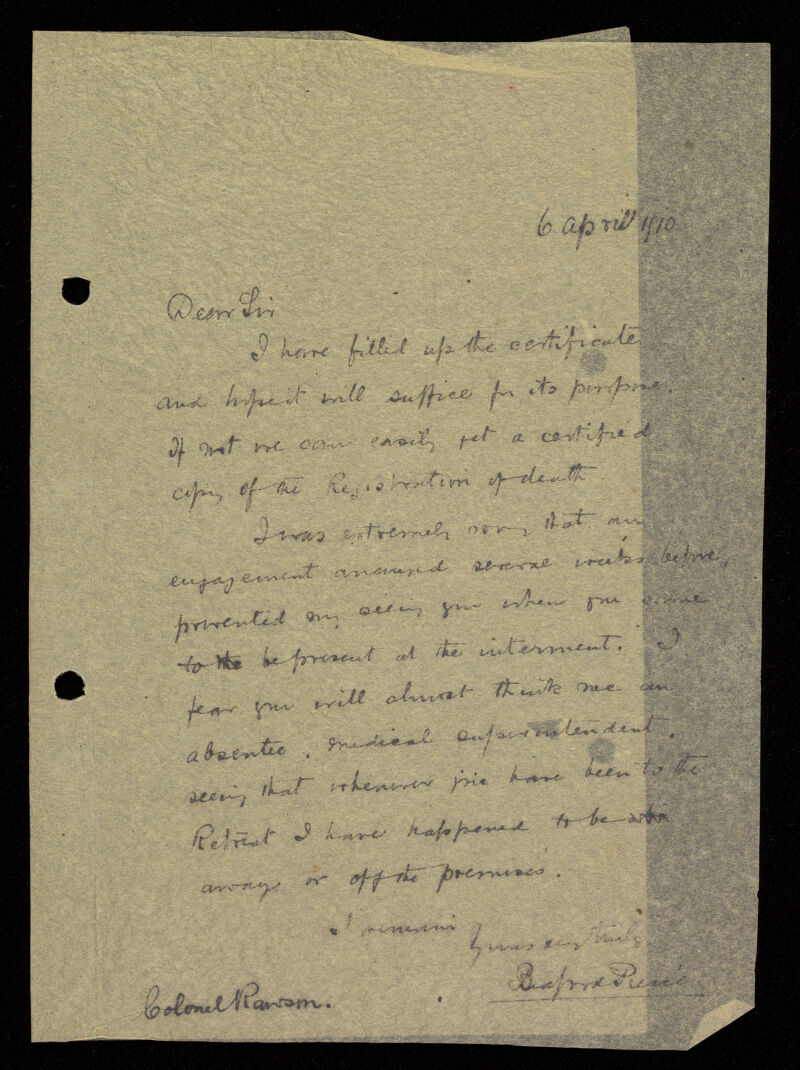 6 April 1910
Dear Sir
I have filled up the certificate
and hope it will suffice for its purpose.
If not we can easily get a certified
copy of the Registration of death
I was extremely sorry that an
engagement arranged several weeks before,
prevented my seeing you when you came
to the be present at the interment. I
fear you will almost think me an
absentee medical superintendent,
seeing that whenever you have been to the
Retreat I have happened to be
away or off the premises.
I remain
Yours very truly
Bedford Pierce
Colonel Rawson.